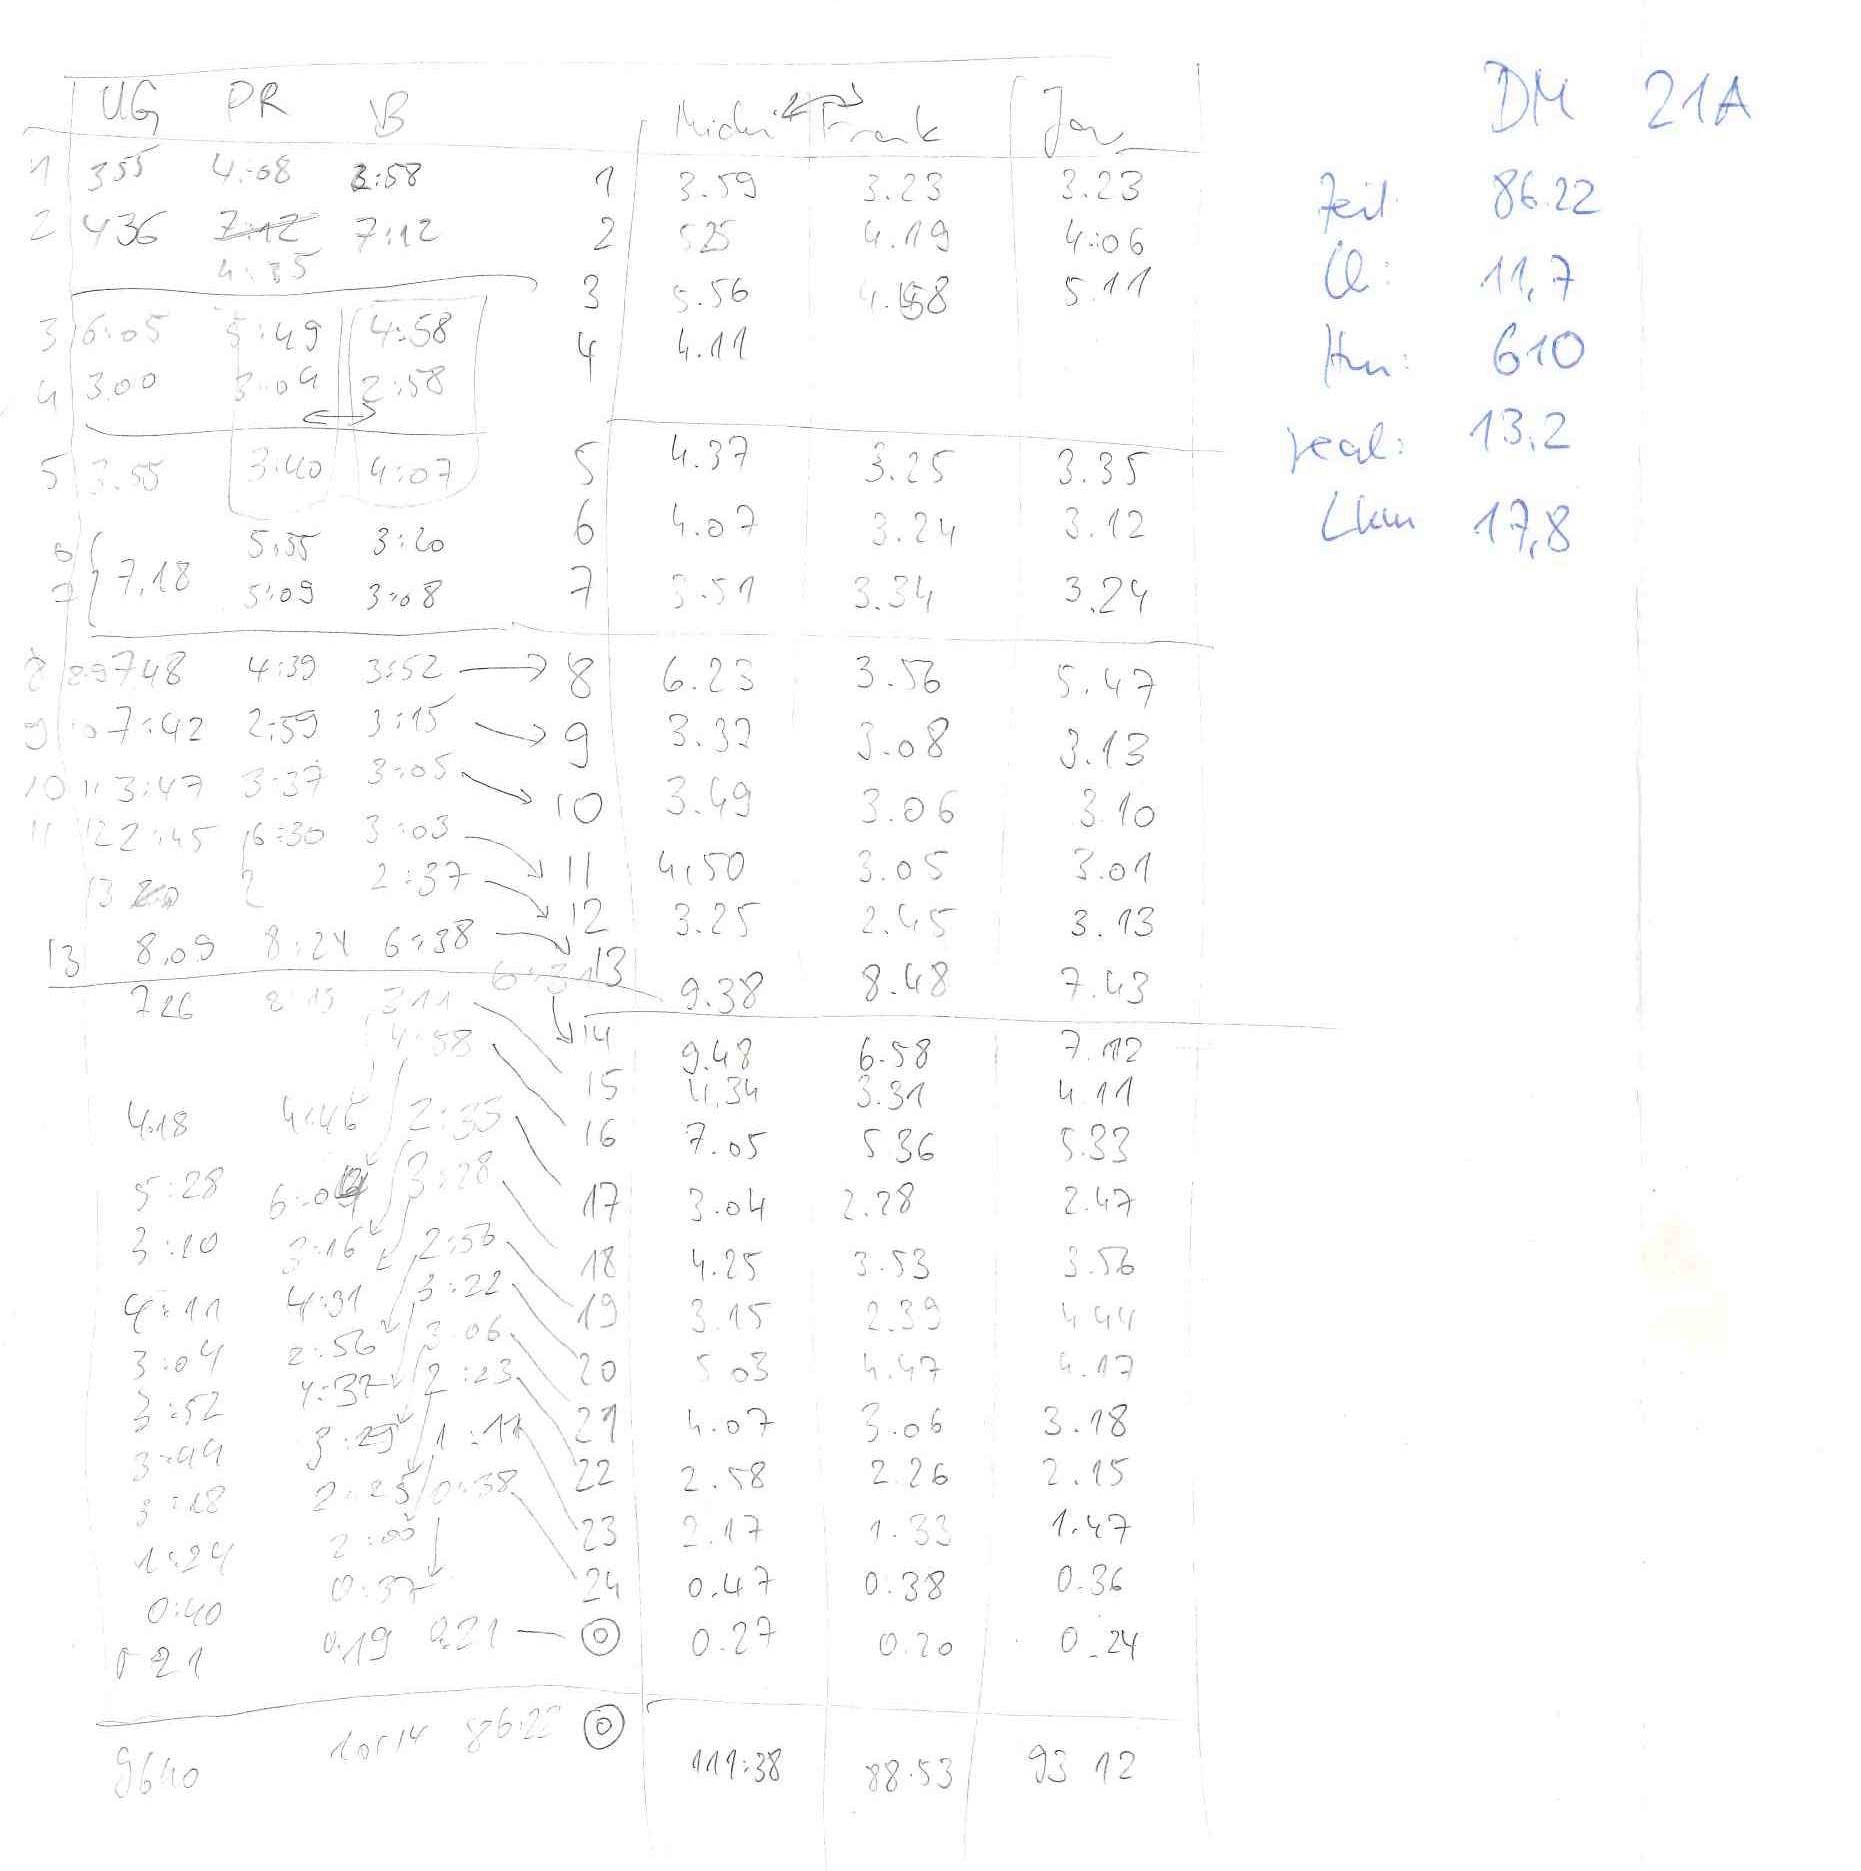 UG PR B Michi Frank Jan DM 21A
1 355 4:08 3:58 1 3.59 3.23 3.23
Zeit: 86.22
2 436 7:12 7:12 2 525 4.19 4:06
4:35
Ol: 11,7
3 5.56 4.58 5.11
3 6:05 5:49 4:58
4 4.11
Hm: 610
4 3.00 3:04 2:58
real: 13,2
5 3.55 3:40 4:07 5 4.37 3.25 3.35
Lkm 17,8
6 5:55 3:20 6 4.07 3.24 3.12
7,18
7 5:09 3:08 7 3.51 3.34 3.24
8 8-9 7.48 4:39 3:52 8 6.23 3.56 5.47
9 10 7:42 2:59 3:15 9 3.32 3.08 3.13
10 11 3:47 3:37 3:05 10 3.49 3.06 3.10
11 12 2:45 6:30 3:03 11 4,50 3.05 3.01
13 2 2:37 12 3.25 2.45 3.13
13 8.09 8:24 6:38 13 9.38 8.48 7.43
726 8:19 3:11 14 9.48 6.58 7.12
4:58 15 4.34 3.31 4.11
4:18 4:46 2:35 16 7.05 5 36 5.33
5:28 3:28 17 3.04 2.28 2.47
3:10 3:16 2:56 18 4.25 3.53 3.56
4:11 4:31 3:22 19 3.15 2.39 4 44
3:04 2:56 3:06 20 5 03 4.47 4.17
3:52 4:37 2:23 21 4.07 3.06 3.18
3:44 3:29 1:11 22 2.58 2.26 2.15
3:18 2:25 0:38 23 2.17 1.33 1.47
1:24 2:00 24 0.47 0.38 0.36
0:40 0:37
0 21 0.19 0.21 0.27 0.20 0.24
9640 86:22 111:38 88.53 93 12